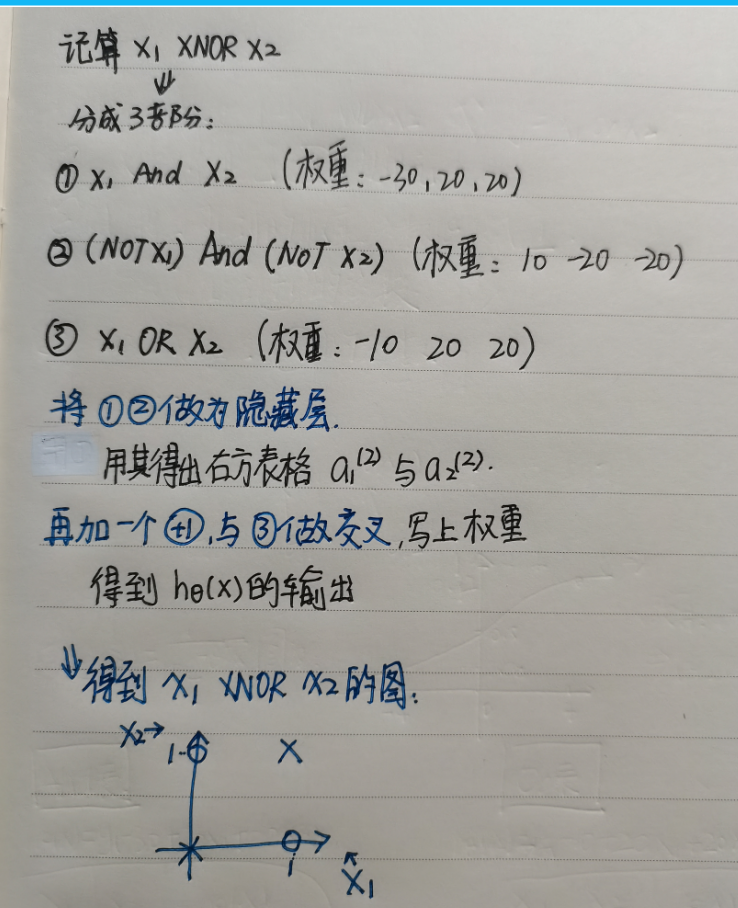 记算 X₁ XNOR X₂
⇓
分成3部分:
① X₁ And X₂ (权重: -30, 20, 20)
② (NOT X₁) And (NOT X₂) (权重: 10 -20 -20)
③ X₁ OR X₂ (权重: -10 20 20)
将①②做为隐藏层.
用其得出右方表格 a₁⁽²⁾ 与 a₂⁽²⁾.
再加一个 (+1), 与③做交叉, 写上权重
得到 hθ(x) 的输出
⇓得到 X₁ XNOR X₂ 的图:
X₂→
1
1
X₁